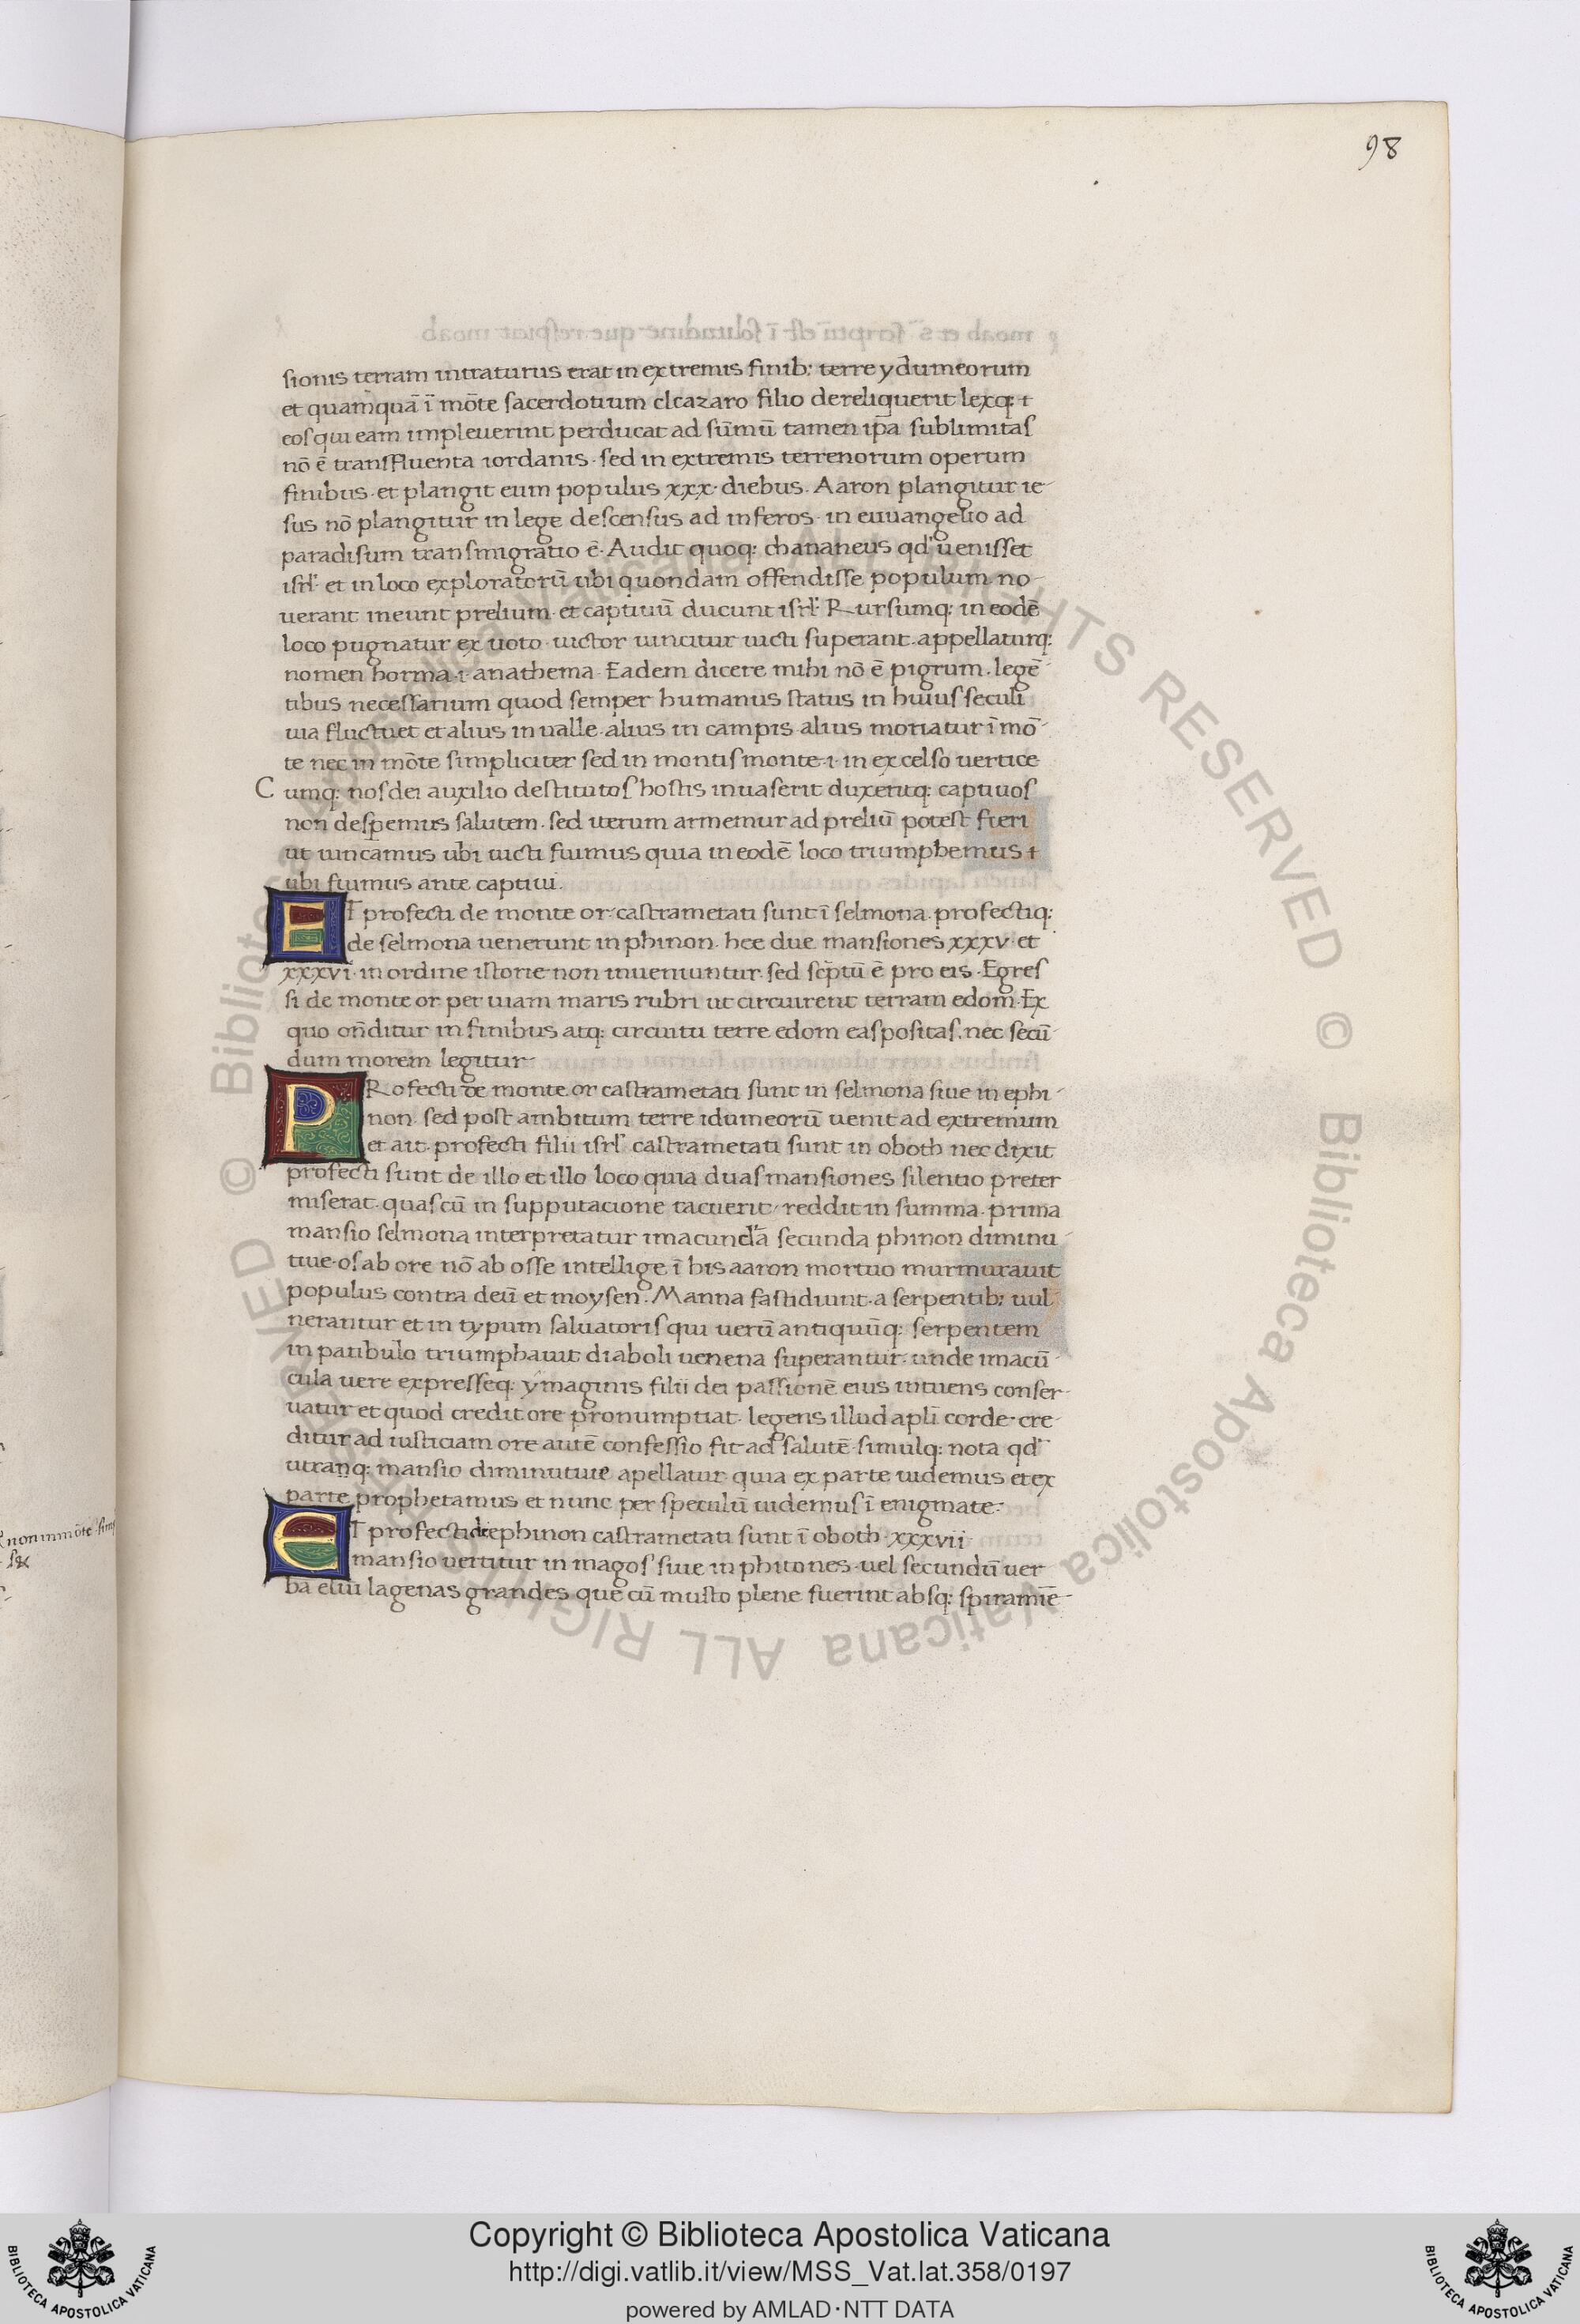 98
sionis terram intraturus erat in extremis finib: terre ydumeorum
et quamquā ī mōte sacerdotium eleazaro filio dereliquerit lexq: ⁊
eos qui eam impleuerint perducat ad sūmū tamen ip̄a sublimitas
nō ē transfluenta iordanis · sed in extremis terrenorum operum
finibus · et plangit eum populus xxx · diebus · Aaron plangitur ie-
sus nō plangitur in lege descensus ad inferos · in euuangelio ad
paradisum transmigratio ē · Audit quoq: chananeus qd' uenisset
isrl' et in loco exploratorū ubi quondam offendisse populum no-
uerant ineunt prelium · et captiuū ducunt isrl' Rursumq: in eodē
loco pugnatur ex uoto · uictor uincitur uicti superant · appellaturq:
nomen horma · i · anathema · Eadem dicere mihi nō ē pigrum · legē-
tibus necessarium quod semper humanus status in huius seculi
uia fluctuet et alius in ualle · alius in campis · alius moriatur ī mō-
te nec in mōte simpliciter sed in montis monte · i · in excelso uertice
Cumq: nos dei auxilio destitutos hostis inuaserit duxeritq: captiuos
non desperemus salutem · sed iterum armemur ad preliū potest fieri
ut uincamus ubi uicti fuimus quia in eodē loco triumphemus ⁊
ubi fuimus ante captiui ·
ET profecti de monte or castrametati sunt ī selmona · profectiq:
de selmona uenerunt in phinon · hee due mansiones xxxv · et
xxxvi · in ordine istorie non inueniuntur · sed scptū ē pro eis · Egres
si de monte or per uiam maris rubri ut circuirent terram edom · Ex
quo on̄ditur in finibus atq: circuitu terre edom eas positas · nec secū-
dum morem legitur
PRofecti de monte or castrametati sunt in selmona siue in ephi-
non · sed post ambitum terre idumeorū uenit ad extremum
et ait · profecti filii isrl' castrametati sunt in oboth nec dixit
profecti sunt de illo et illo loco quia duas mansiones silentio preter
miserat · quas cū in supputacione tacuerit reddit in summa · prima
mansio selmona interpretatur imacuncl'a secunda phinon diminu
tiue · os ab ore nō ab osse intellige ī his aaron mortuo murmurauit
populus contra deū et moysen · Manna fastidiunt · a serpentib: uul
nerantur et in typum saluatoris qui uerū antiquūq: serpentem
in patibulo triumphauit diaboli uenena superantur · unde imacū-
cula uere expresseq: ymaginis filii dei passionē eius intuens conser-
uatur et quod credit ore pronumptiat · legens illud apl̄i corde cre-
ditur ad iusticiam ore autē confessio fit ad salutē · simulq: nota qd'
utranq: mansio diminutiue apellatur quia ex parte uidemus et ex
parte prophetamus et nunc per speculū uidemus ī enigmate ·
ET profecti de ephinon castrametati sunt ī oboth · xxxvii
mansio uertitur in magos siue in phitones · uel secundū uer
ba eliu lagenas grandes que cū musto plene fuerint absq: spiramē-
Copyright © Biblioteca Apostolica Vaticana
http://digi.vatlib.it/view/MSS_Vat.lat.358/0197
powered by AMLAD·NTT DATA
BIBLIOTECA APOSTOLICA VATICANA
BIBLIOTECA APOSTOLICA VATICANA
© Biblioteca Apostolica Vaticana ALL RIGHTS RESERVED © Biblioteca Apostolica Vaticana ALL RIGHTS RESERVED